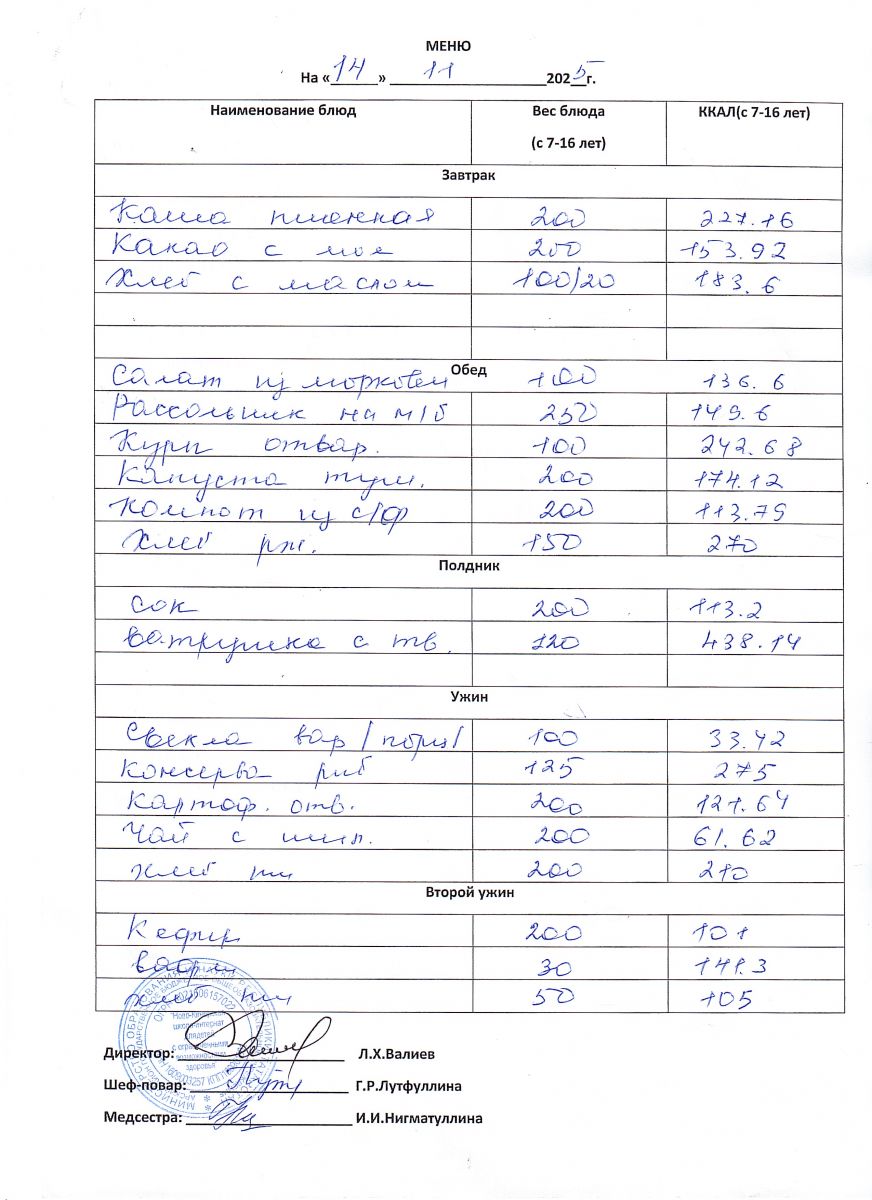 МЕНЮ
На «14» 11 2025г.
Наименование блюд Вес блюда (с 7-16 лет) ККАЛ(с 7-16 лет)
Завтрак
Каша пшенная 200 227.16
Какао с мол 200 153.92
Хлеб с маслом 100/20 183.6
Обед
Салат из моркови 100 136.6
Рассольник на м/б 250 149.6
Куры отвар. 100 242.68
Капуста туш. 200 174.12
Компот из с/ф 200 113.79
Хлеб рж. 150 270
Полдник
Сок 200 113.2
Ватрушка с тв. 120 438.14
Ужин
Свекла вар /порц/ 100 33.42
Консерва рыб 125 275
Картоф. отв. 200 121.64
Чай с шип. 200 61.62
Хлеб пш 200 210
Второй ужин
Кефир 200 101
Вафли 30 141.3
Хлеб пш 50 105
Директор: Л.Х.Валиев
Шеф-повар: Г.Р.Лутфуллина
Медсестра: И.И.Нигматуллина